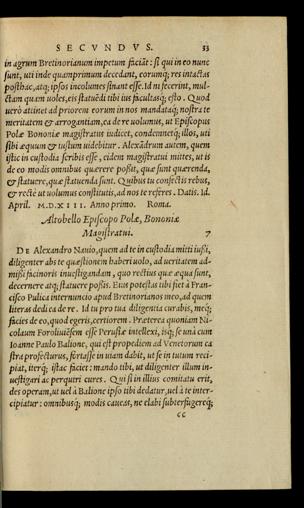 SECVNDVS. 53
in agrum Bretinorianum impetum faciāt: si qui in eo nunc
sunt, uti inde quamprimum decedant, eorumq; res intactas
posthac, atq; ipsos incolumes sinant esse. Id ni fecerint, mul-
ctam quam uoles, eis statuēdi tibi ius facultasq; esto. Quod
uerò attinet ad priorem eorum in nos mandataq; nostra te
meritatem & arrogantiam, ea de re uolumus, ut Episcopus
Polæ Bononiæ magistratus iudicet, condemnetq; illos, uti
sibi æquum & iustum uidebitur. Alexādrum autem, quem
istic in custodia scribis esse, eidem magistratui mittes, ut is
de eo modis omnibus quærere possit, quæ sunt quærenda,
& statuere, quæ statuenda sunt. Quibus tu confectis rebus,
& rectè ut uolumus constitutis, ad nos te referes. Datis. Id.
April. M.D.XIII. Anno primo. Roma.
Altobello Episcopo Polæ, Bononiæ
Magistratui. 7
DE Alexandro Nauio, quem ad te in custodia mitti iussi,
diligenter abs te quæstionem haberi uolo, ad ueritatem ad-
missi facinoris inuestigandam, quo rectius quæ æqua sunt,
decernere atq; statuere possis. Eius potestas tibi fiet à Fran-
cisco Pulica internuncio apud Bretinorianos meo, ad quem
literas dedi ea de re. Id tu pro tua diligentia curabis, meq;
facies de eo, quod egeris, certiorem. Præterea quoniam Ni-
colaum Foroliuiēsem esse Perusiæ intellexi, isq; se unà cum
Ioanne Paulo Balione, qui est propediem ad Venetorum ca
stra profecturus, fortasse in uiam dabit, ut se in tutum reci-
piat, iterq; istac faciet: mando tibi, ut diligenter illum in-
uestigari ac perquiri cures. Qui si in illius comitatu erit,
des operam, ut uel à Balione ipso tibi dedatur, uel à te inter-
cipiatur: omnibusq; modis caueas, ne elabi subterfugereq;
cc